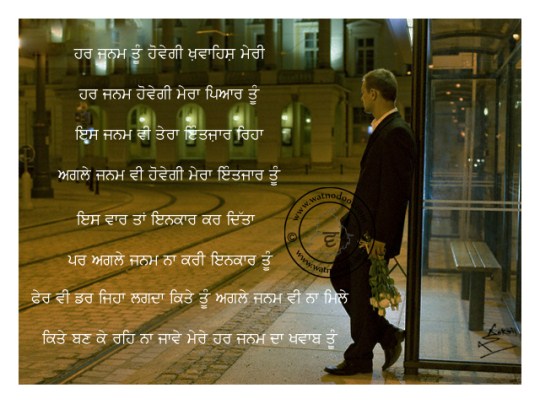 ਹਰ ਜਨਮ ਤੂੰ ਹੋਵੇਗੀ ਖ਼ਵਾਹਿਸ਼ ਮੇਰੀ
ਹਰ ਜਨਮ ਹੋਵੇਗੀ ਮੇਰਾ ਪਿਆਰ ਤੂੰ
ਇਸ ਜਨਮ ਵੀ ਤੇਰਾ ਇੰਤਜ਼ਾਰ ਰਿਹਾ
ਅਗਲੇ ਜਨਮ ਵੀ ਹੋਵੇਗੀ ਮੇਰਾ ਇੰਤਜਾਰ ਤੂੰ
ਇਸ ਵਾਰ ਤਾਂ ਇਨਕਾਰ ਕਰ ਦਿੱਤਾ
ਪਰ ਅਗਲੇ ਜਨਮ ਨਾ ਕਰੀ ਇਨਕਾਰ ਤੂੰ
ਫੇਰ ਵੀ ਡਰ ਜਿਹਾ ਲਗਦਾ ਕਿਤੇ ਤੂੰ ਅਗਲੇ ਜਨਮ ਵੀ ਨਾ ਮਿਲੇ
ਕਿਤੇ ਬਣ ਕੇ ਰਹਿ ਨਾ ਜਾਵੇ ਮੇਰੇ ਹਰ ਜਨਮ ਦਾ ਖਵਾਬ ਤੂੰ